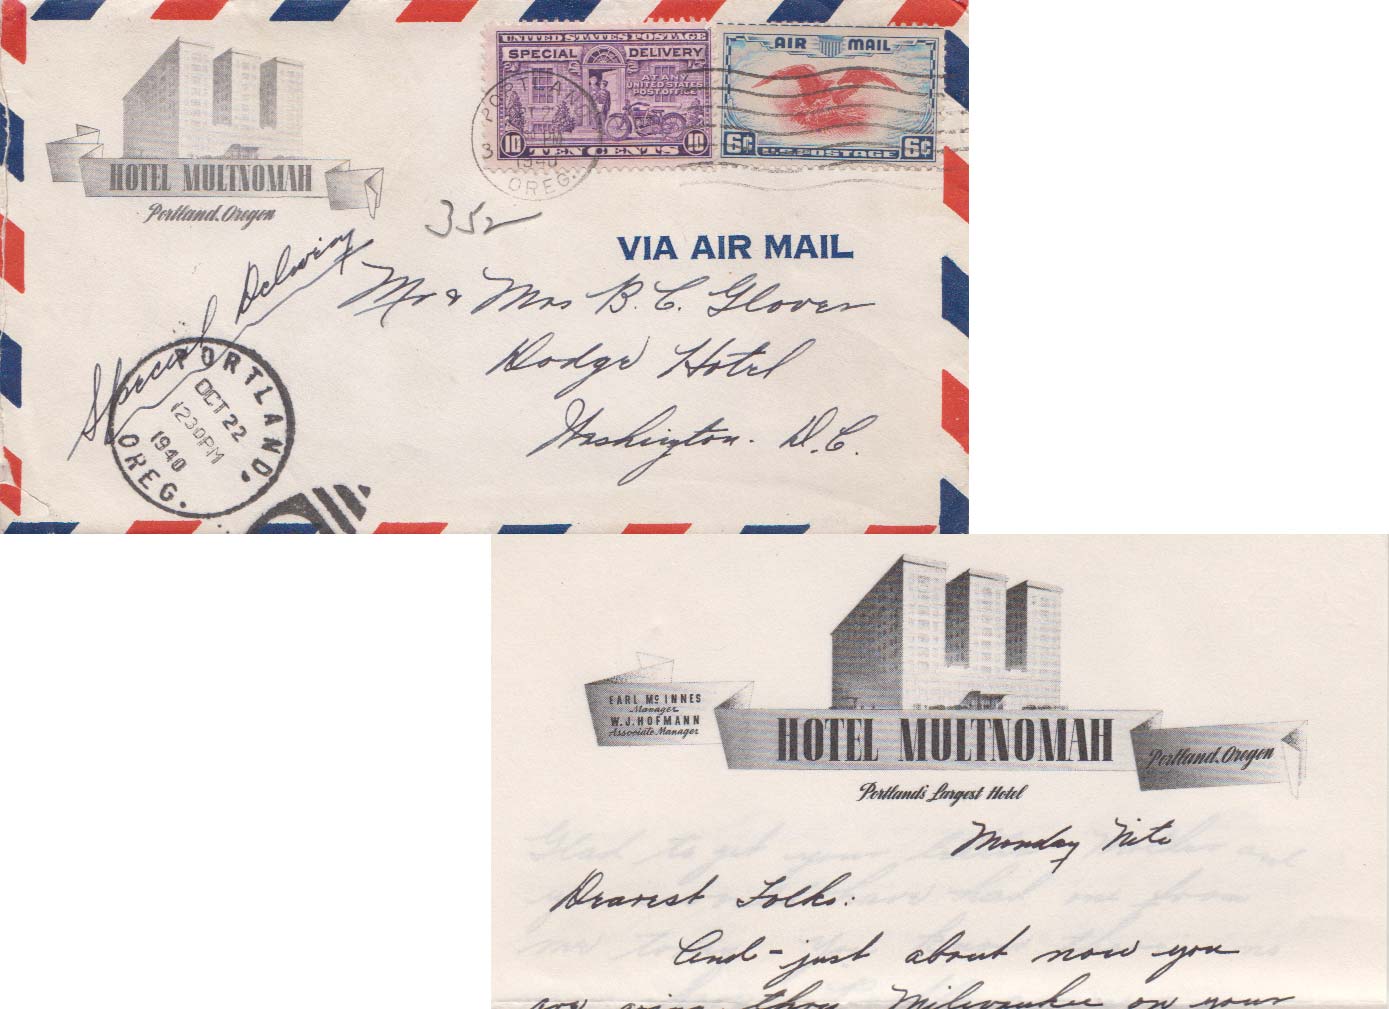 UNITED STATES POSTAGE
SPECIAL DELIVERY
AT ANY
UNITED STATES
POST OFFICE
10 TEN CENTS 10
AIR MAIL
6¢ U.S. POSTAGE 6¢
PORTLAND
3
1940
OREG.
HOTEL MULTNOMAH
Portland, Oregon
352
VIA AIR MAIL
Special Delivery
Mr & Mrs B. C. Glover
Dodge Hotel
Washington. D.C.
PORTLAND,
OCT 22
1230PM
1940
OREG.
EARL Mc INNES
Manager
W. J. HOFMANN
Associate Manager
HOTEL MULTNOMAH
Portland, Oregon
Portland's Largest Hotel
Monday Nite
Dearest Folks:
And - just about now you
are going thru Milwaukee on your